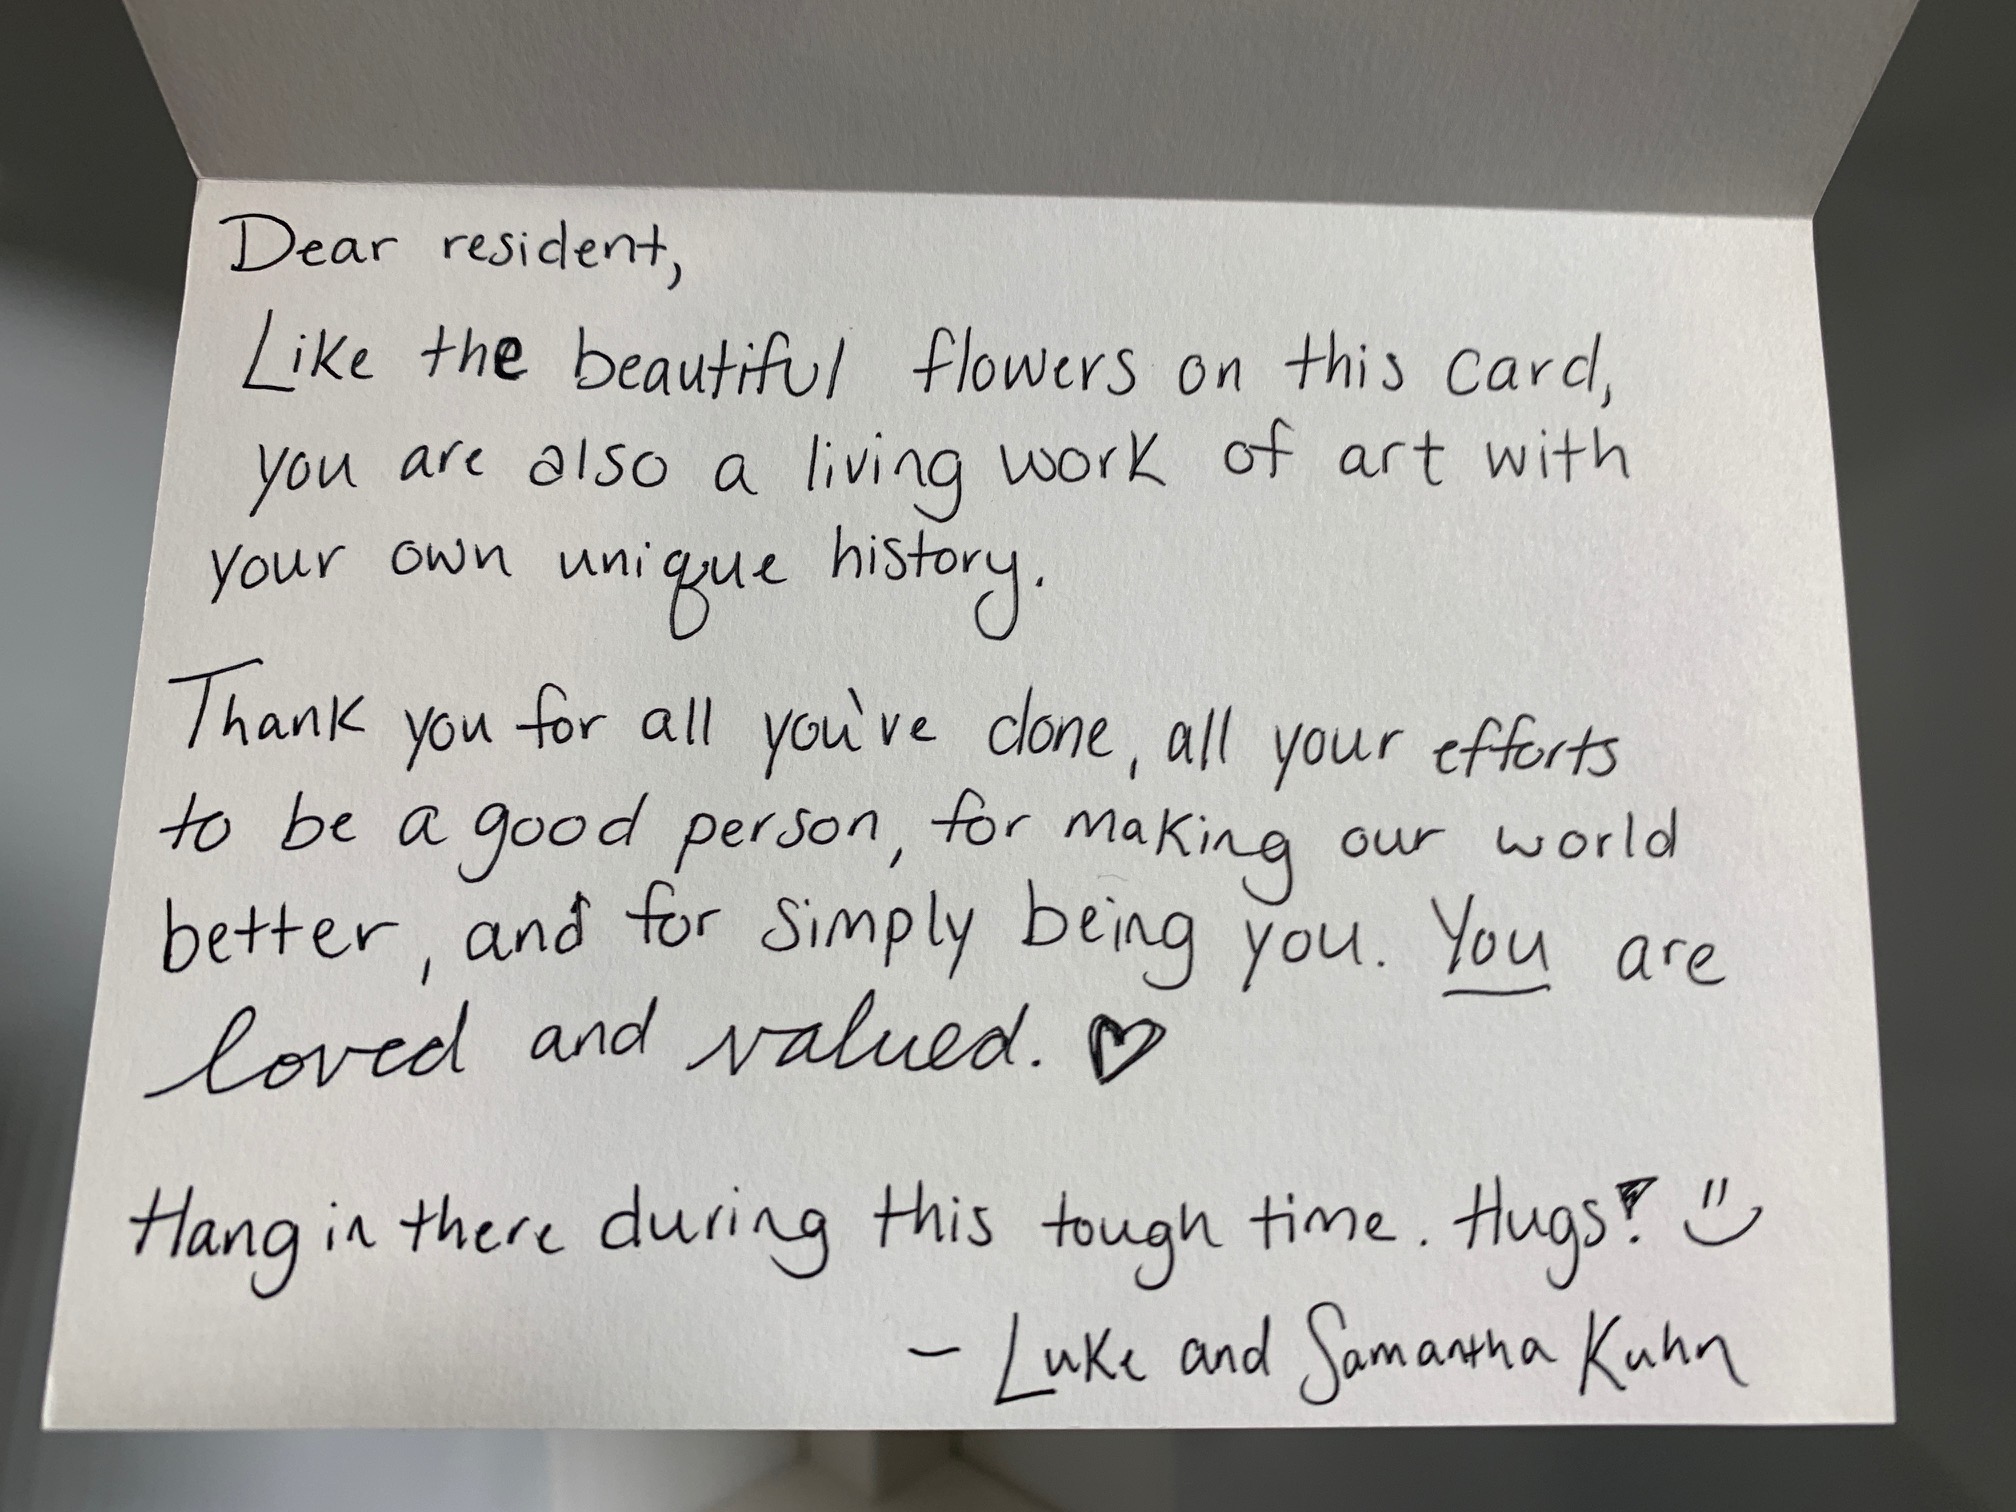 Dear resident,
Like the beautiful flowers on this card,
you are also a living work of art with
your own unique history.
Thank you for all you've done, all your efforts
to be a good person, for making our world
better, and for simply being you. You are
loved and valued. ♡
Hang in there during this tough time. Hugs! :)
- Luke and Samantha Kuhn